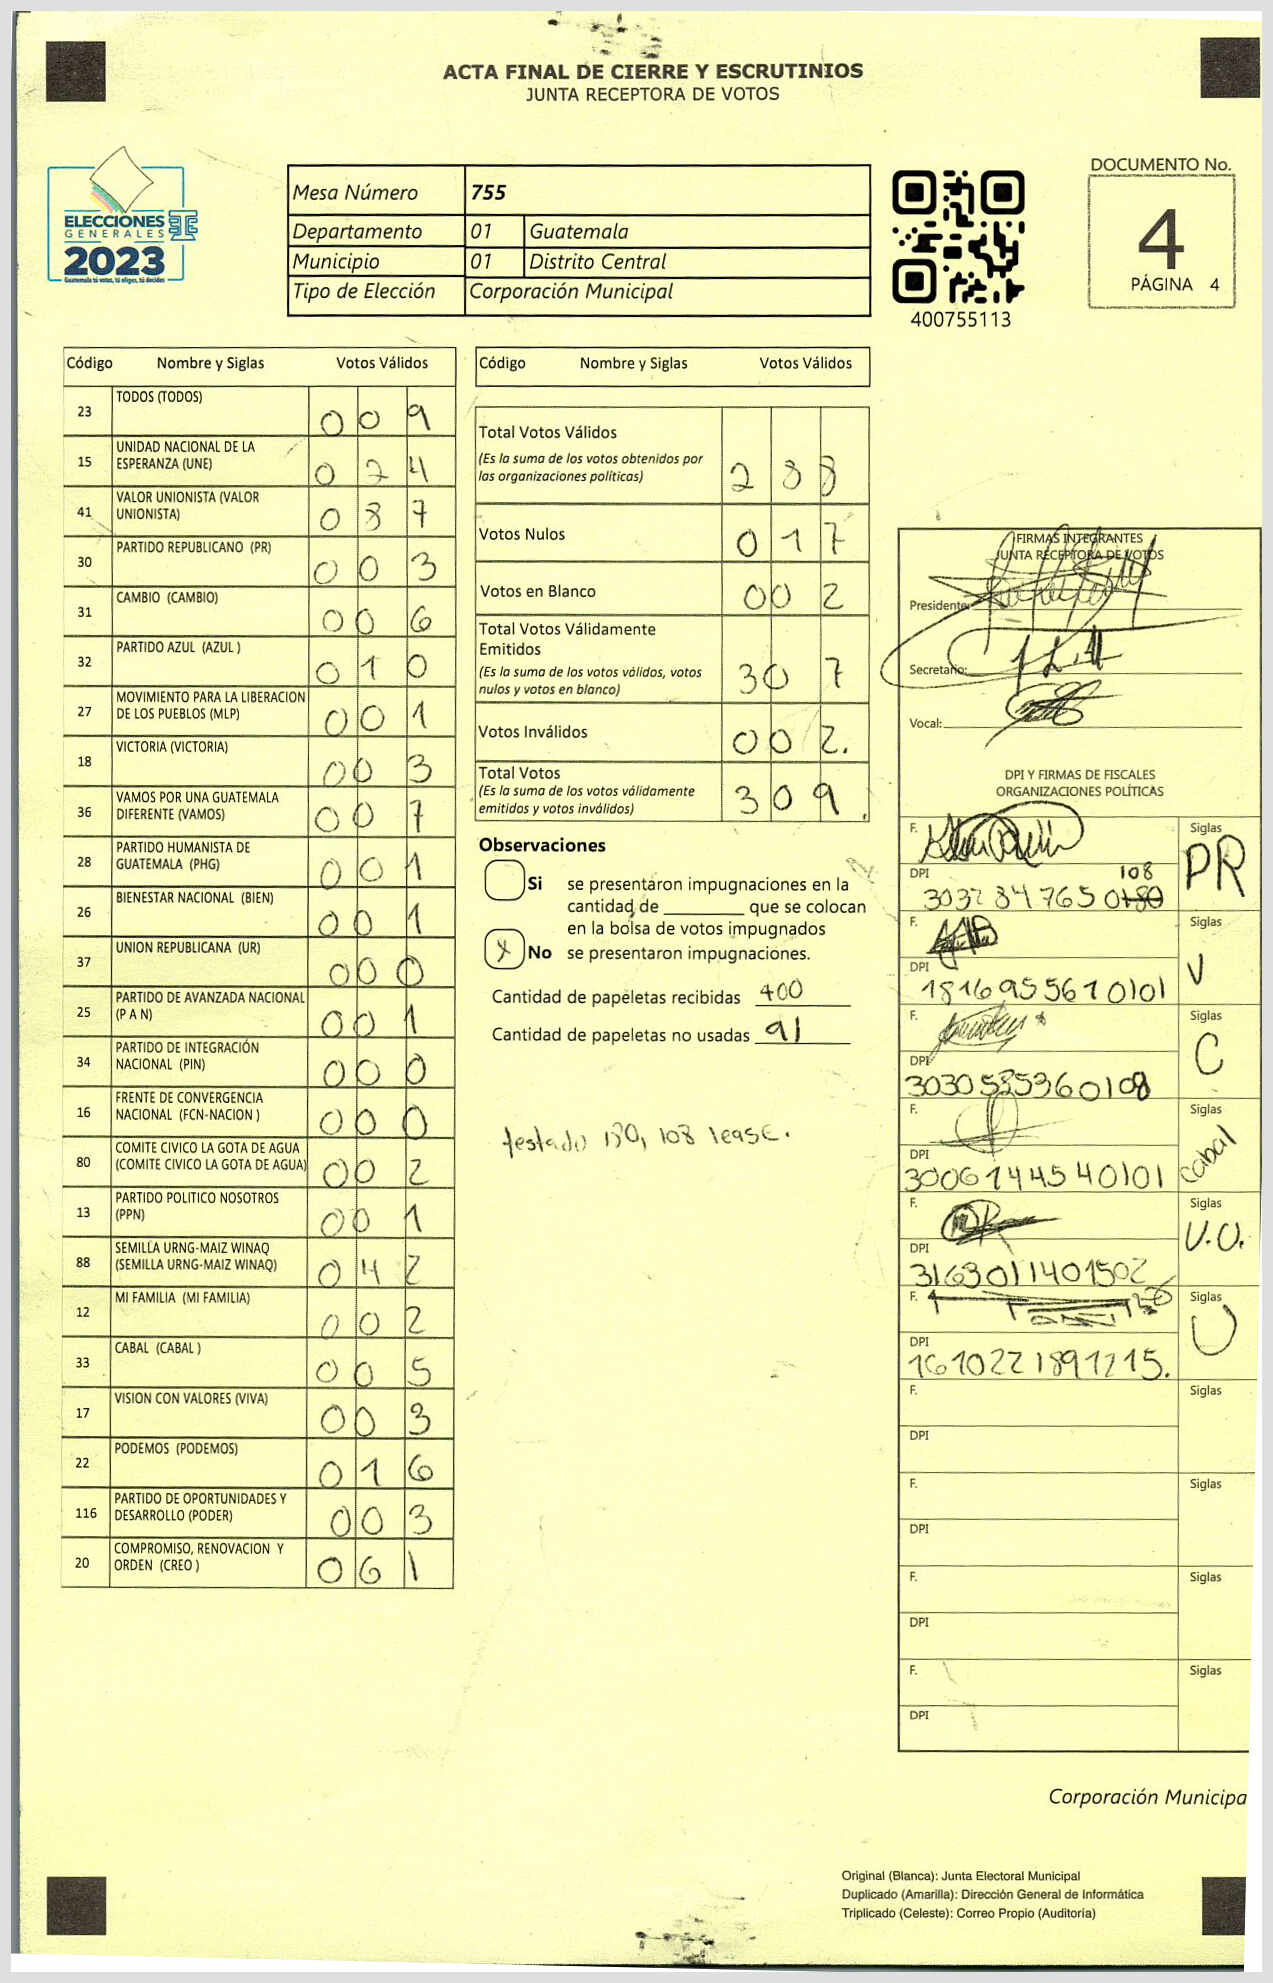 ACTA FINAL DE CIERRE Y ESCRUTINIOS
JUNTA RECEPTORA DE VOTOS
ELECCIONES
GENERALES
2023
Guatemala tú votas, tú eliges, tú decides
Mesa Número 755
Departamento 01 Guatemala
Municipio 01 Distrito Central
Tipo de Elección Corporación Municipal
400755113
DOCUMENTO No.
4
PÁGINA 4
Código Nombre y Siglas Votos Válidos
23 TODOS (TODOS) 0 0 9
15 UNIDAD NACIONAL DE LA ESPERANZA (UNE) 0 2 4
41 VALOR UNIONISTA (VALOR UNIONISTA) 0 8 7
30 PARTIDO REPUBLICANO (PR) 0 0 3
31 CAMBIO (CAMBIO) 0 0 6
32 PARTIDO AZUL (AZUL ) 0 1 0
27 MOVIMIENTO PARA LA LIBERACION DE LOS PUEBLOS (MLP) 0 0 1
18 VICTORIA (VICTORIA) 0 0 3
36 VAMOS POR UNA GUATEMALA DIFERENTE (VAMOS) 0 0 7
28 PARTIDO HUMANISTA DE GUATEMALA (PHG) 0 0 1
26 BIENESTAR NACIONAL (BIEN) 0 0 1
37 UNION REPUBLICANA (UR) 0 0 0
25 PARTIDO DE AVANZADA NACIONAL (P A N) 0 0 1
34 PARTIDO DE INTEGRACIÓN NACIONAL (PIN) 0 0 0
16 FRENTE DE CONVERGENCIA NACIONAL (FCN-NACION ) 0 0 0
80 COMITE CIVICO LA GOTA DE AGUA (COMITE CIVICO LA GOTA DE AGUA) 0 0 2
13 PARTIDO POLITICO NOSOTROS (PPN) 0 0 1
88 SEMILLA URNG-MAIZ WINAQ (SEMILLA URNG-MAIZ WINAQ) 0 4 2
12 MI FAMILIA (MI FAMILIA) 0 0 2
33 CABAL (CABAL ) 0 0 5
17 VISION CON VALORES (VIVA) 0 0 3
22 PODEMOS (PODEMOS) 0 1 6
116 PARTIDO DE OPORTUNIDADES Y DESARROLLO (PODER) 0 0 3
20 COMPROMISO, RENOVACION Y ORDEN (CREO ) 0 6 1
Código Nombre y Siglas Votos Válidos
Total Votos Válidos
(Es la suma de los votos obtenidos por
las organizaciones políticas) 2 8 8
Votos Nulos 0 1 7
Votos en Blanco 0 0 2
Total Votos Válidamente
Emitidos
(Es la suma de los votos válidos, votos
nulos y votos en blanco) 3 0 7
Votos Inválidos 0 0 2.
Total Votos
(Es la suma de los votos válidamente
emitidos y votos inválidos) 3 0 9.
Observaciones
Si se presentaron impugnaciones en la
cantidad de ________ que se colocan
en la bolsa de votos impugnados
X No se presentaron impugnaciones.
Cantidad de papeletas recibidas 400
Cantidad de papeletas no usadas 91
testado 180, 108 léase.
FIRMAS INTEGRANTES
JUNTA RECEPTORA DE VOTOS
Presidente:
Secretario:
Vocal:
DPI Y FIRMAS DE FISCALES
ORGANIZACIONES POLÍTICAS
F. Siglas PR
108
DPI 3032847650180
F. Siglas V
DPI 1816955610101
F. Siglas C
DPI 3030535360108
F. Siglas cabal
DPI 3006144540101
F. Siglas V.U.
DPI 3163011401502
F. Siglas U
DPI 1610221891215.
F. Siglas
DPI
F. Siglas
DPI
F. Siglas
DPI
F. Siglas
DPI
Corporación Municipa
Original (Blanca): Junta Electoral Municipal
Duplicado (Amarilla): Dirección General de Informática
Triplicado (Celeste): Correo Propio (Auditoría)